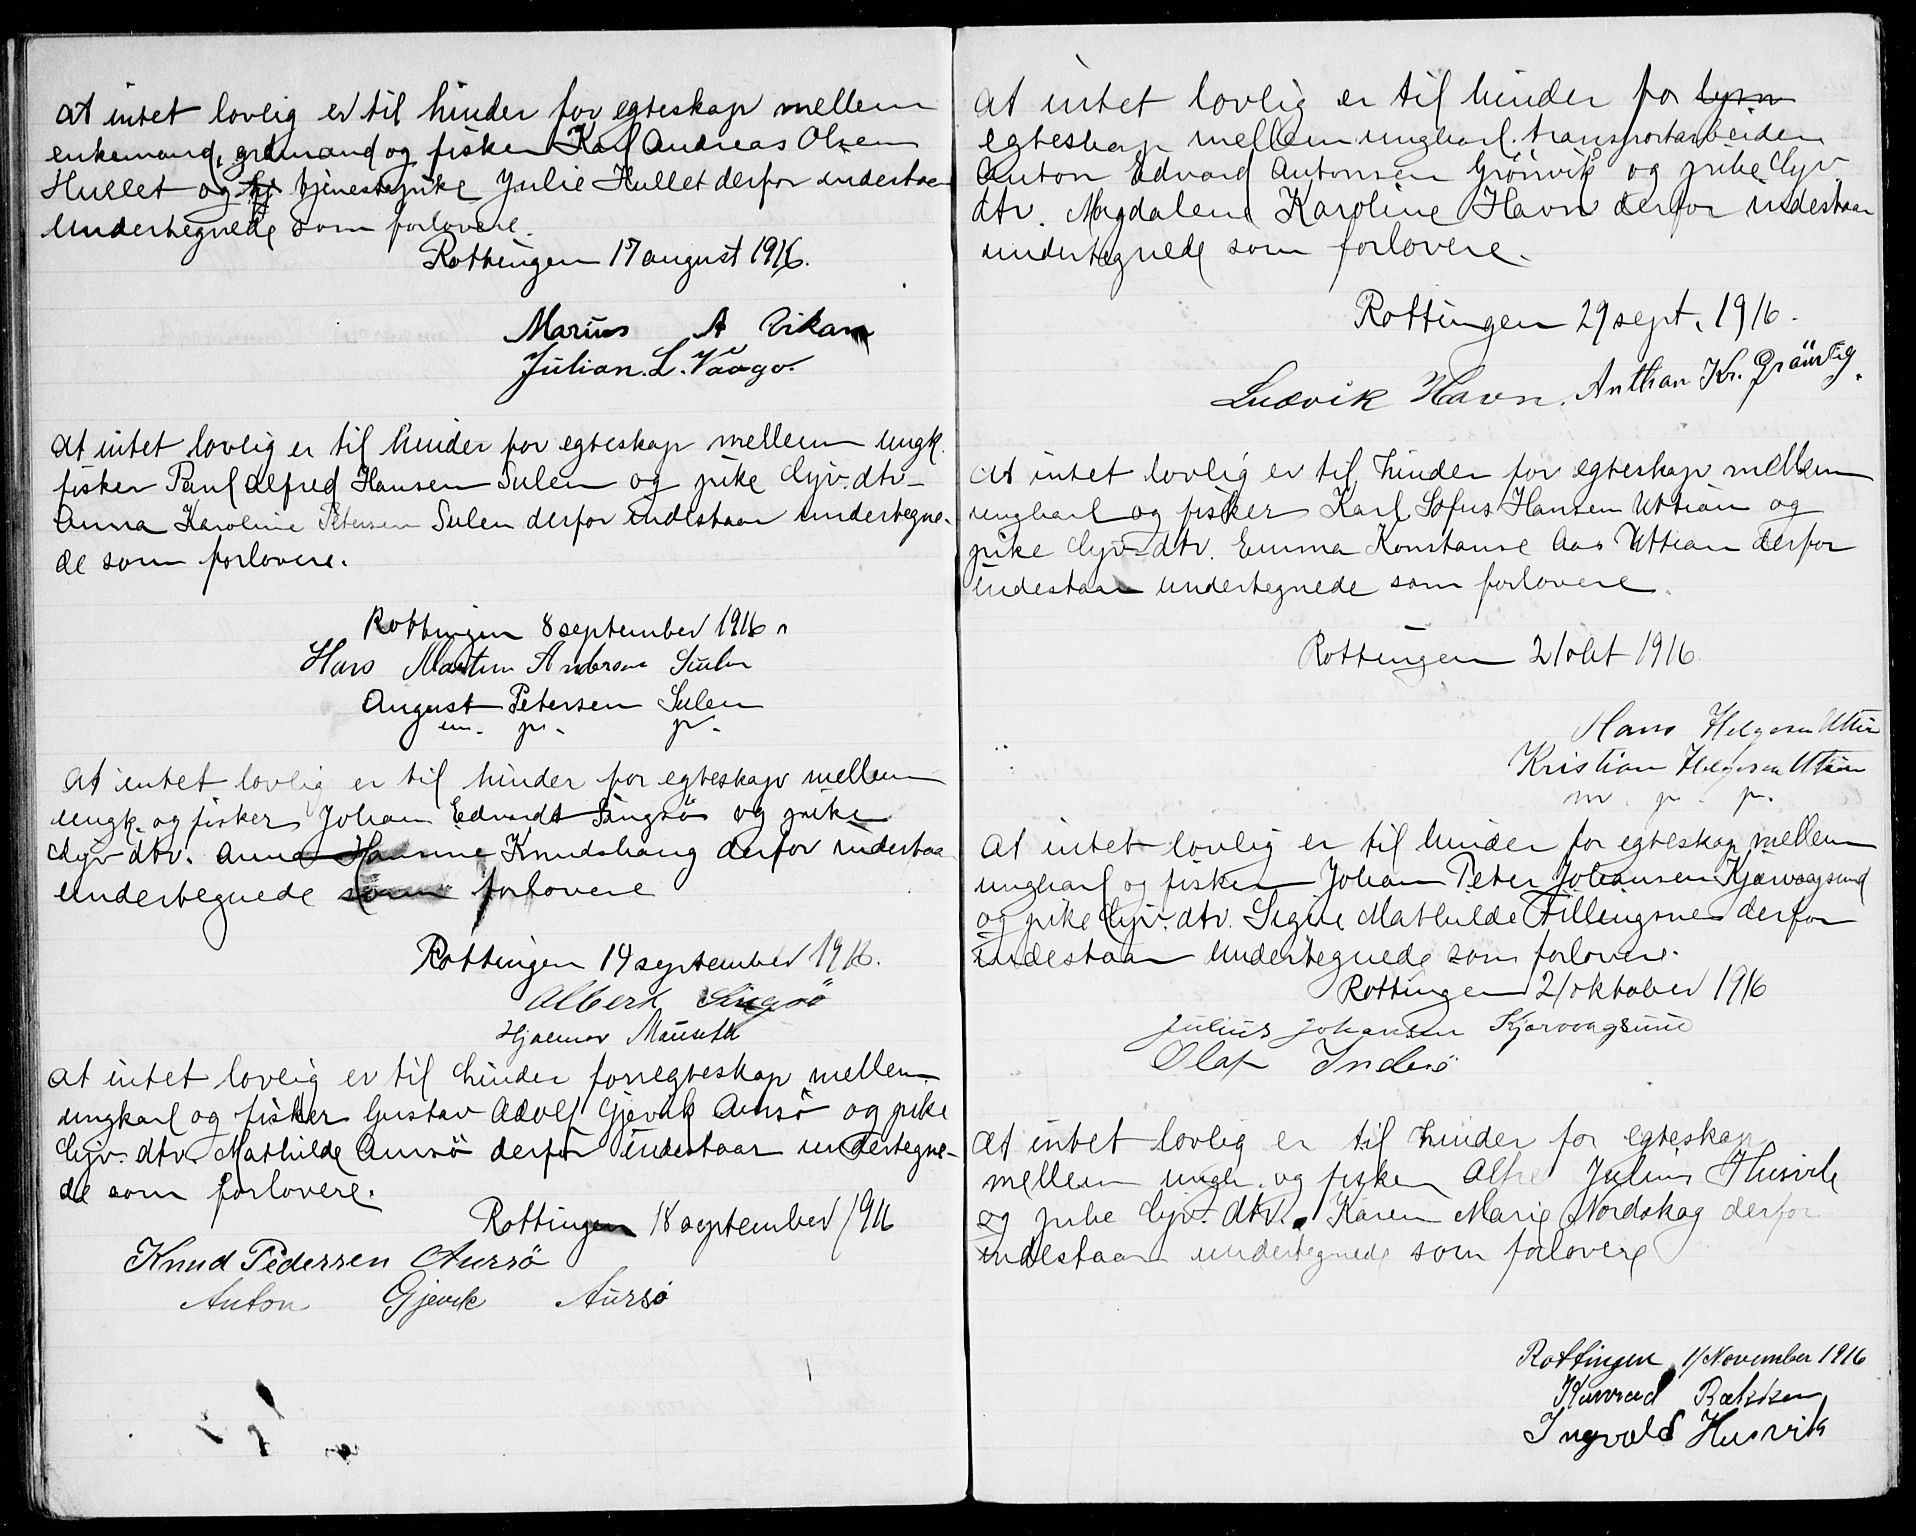 At intet lovlig er til hinder for egteskap mellem
enkemand, grdmand og fisker Karl Andreas Olsen
Hullet og tjenestepike Julie Hullet derfor indestaar
undertegnede som forlovere.
Rottingen 17 august 1916.
Marius A Vikan
Julian. L. Vaago.
At intet lovlig er til hinder for egteskap mellem ungk.
fisker Paul Alfred Hansen Sulen og pike Gjv. dtr
Anna Karoline Petersen Sulen derfor indestaar undertegne-
de som forlovere.
Rottingen 8 september 1916
Hans Martin Andersen Sulen
August Petersen Sulen
m. p. p.
At intet lovlig er til hinder for egteskap mellem
ungk. og fisker Johan Edvardt Singsö og pike
Gjv dtr. Anna Hanna Knudshaug derfor indestaa
undertegnede som forlovere
Rottingen 14 september 1916.
Albert Singsö
Hjalmar Mauseth
At intet lovlig er til hinder for egteskap mellem
ungkarl og fisker Gustav Adolf Gjevik Aursö og pike
Gjv. dtr. Mathilde Aursö derfor indestaar undertegne-
de som forlovere.
Rottingen 18 september 1916
Knud Pedersen Aursö
Anton Gjevik Aursö
At intet lovlig er til hinder for
egteskap mellem ungkarl. transportarbeider
Anton Edvard Antonsen Grönvik og pike Gjv.
dtr. Magdalene Karoline Havn derfor indestaar
undertegnede som forlovere.
Rottingen 29 sept. 1916.
Ludvik Havn. Anthan Kr. Grönvig.
At intet lovlig er til hinder for egteskap mellem
ungkarl og fisker Karl Sofus Hansen Uttian og
pike Gjv. dtr. Emma Konstanse Aas Uttian derfor
indestaar undertegnede som forlovere.
Rottingen 2/okt 1916.
Hans Helgesen Uttian
Kristian Helgesen Uttian
m. p. p.
At intet lovlig er til hinder for egteskap mellem
ungkarl og fisker Johan Peter Johansen Kjærvaagsund
og pike Gjv. dtr. Signe Mathilde Fillingsnes derfor
indestaar undertegnede som forlovere.
Rottingen 2/oktober 1916
Julius Johansen Kjærvaagsund
Olaf Inderö
At intet lovlig er til hinder for egteskap
mellem ungk. og fisker Alfr Julius Husvik
og pike Gjv. dtr. Karen Marie Nordskag derfor
indestaar undertegnede som forlovere
Rottingen 1/November 1916
Konrad Bækken
Ingvald Husvik